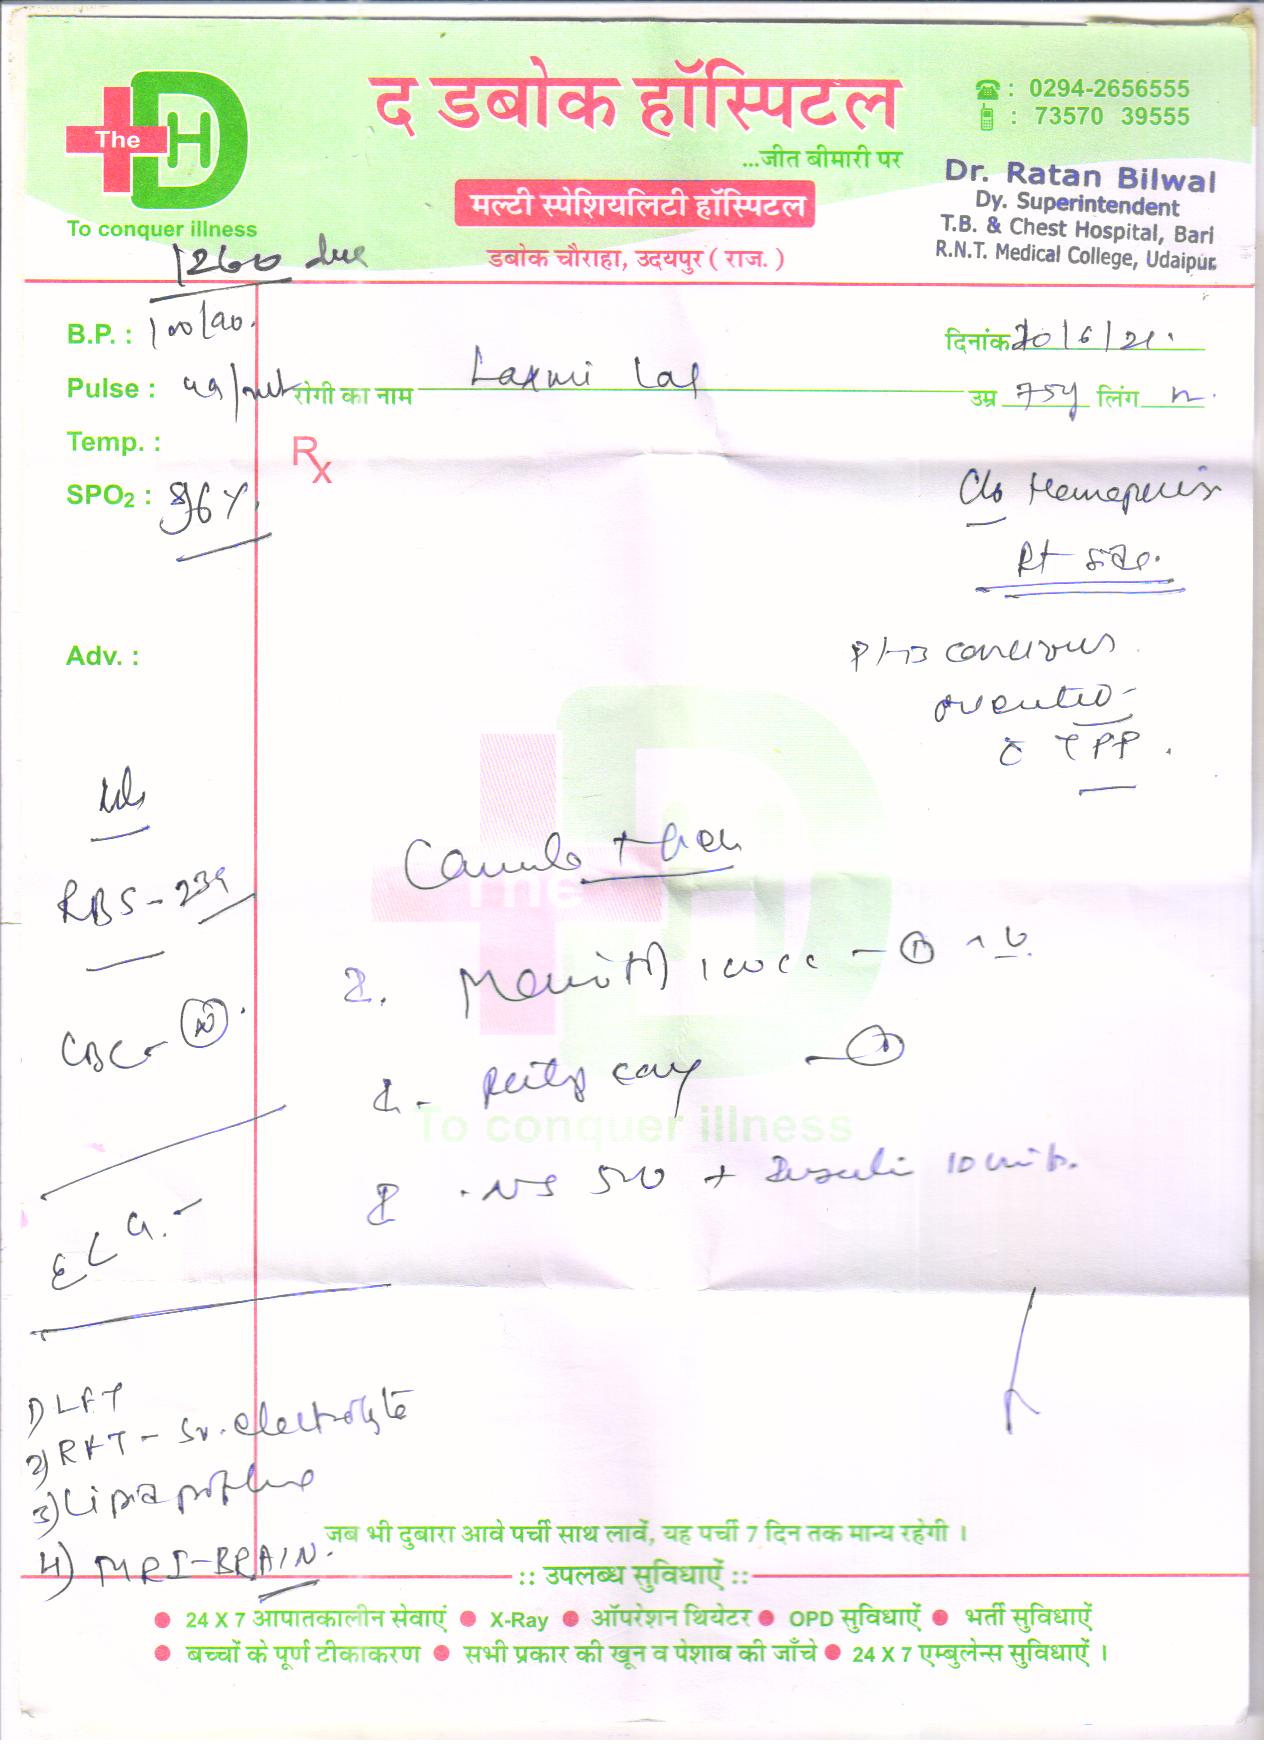 The DH
To conquer illness
द डबोक हॉस्पिटल
...जीत बीमारी पर
मल्टी स्पेशियलिटी हॉस्पिटल
डबोक चौराहा, उदयपुर ( राज. )
☎ : 0294-2656555
: 73570 39555
Dr. Ratan Bilwal
Dy. Superintendent
T.B. & Chest Hospital, Bari
R.N.T. Medical College, Udaipur.
1260 due
B.P. :
दिनांक 20/6/21.
Pulse :
रोगी का नाम Laxmi Lal
उम्र 75y लिंग
Temp. :
Rx
SPO2 : 96%.
C/o
Rt side.
Adv. :
oriented
c TPP.
RBS - 239
CBC - N
100cc - 1
- 1
NS 500 + Insulin 10 units.
ECG. -
1) LFT
2) RFT - Sr. electrolyte
3) Lipid profile
4) MRI - BRAIN.
The
To conquer illness
जब भी दुबारा आवे पर्ची साथ लावें, यह पर्ची 7 दिन तक मान्य रहेगी ।
:: उपलब्ध सुविधाऐं ::
● 24 X 7 आपातकालीन सेवाएं ● X-Ray ● ऑपरेशन थियेटर ● OPD सुविधाऐं ● भर्ती सुविधाऐं
● बच्चों के पूर्ण टीकाकरण ● सभी प्रकार की खून व पेशाब की जाँचे ● 24 X 7 एम्बुलेन्स सुविधाऐं ।